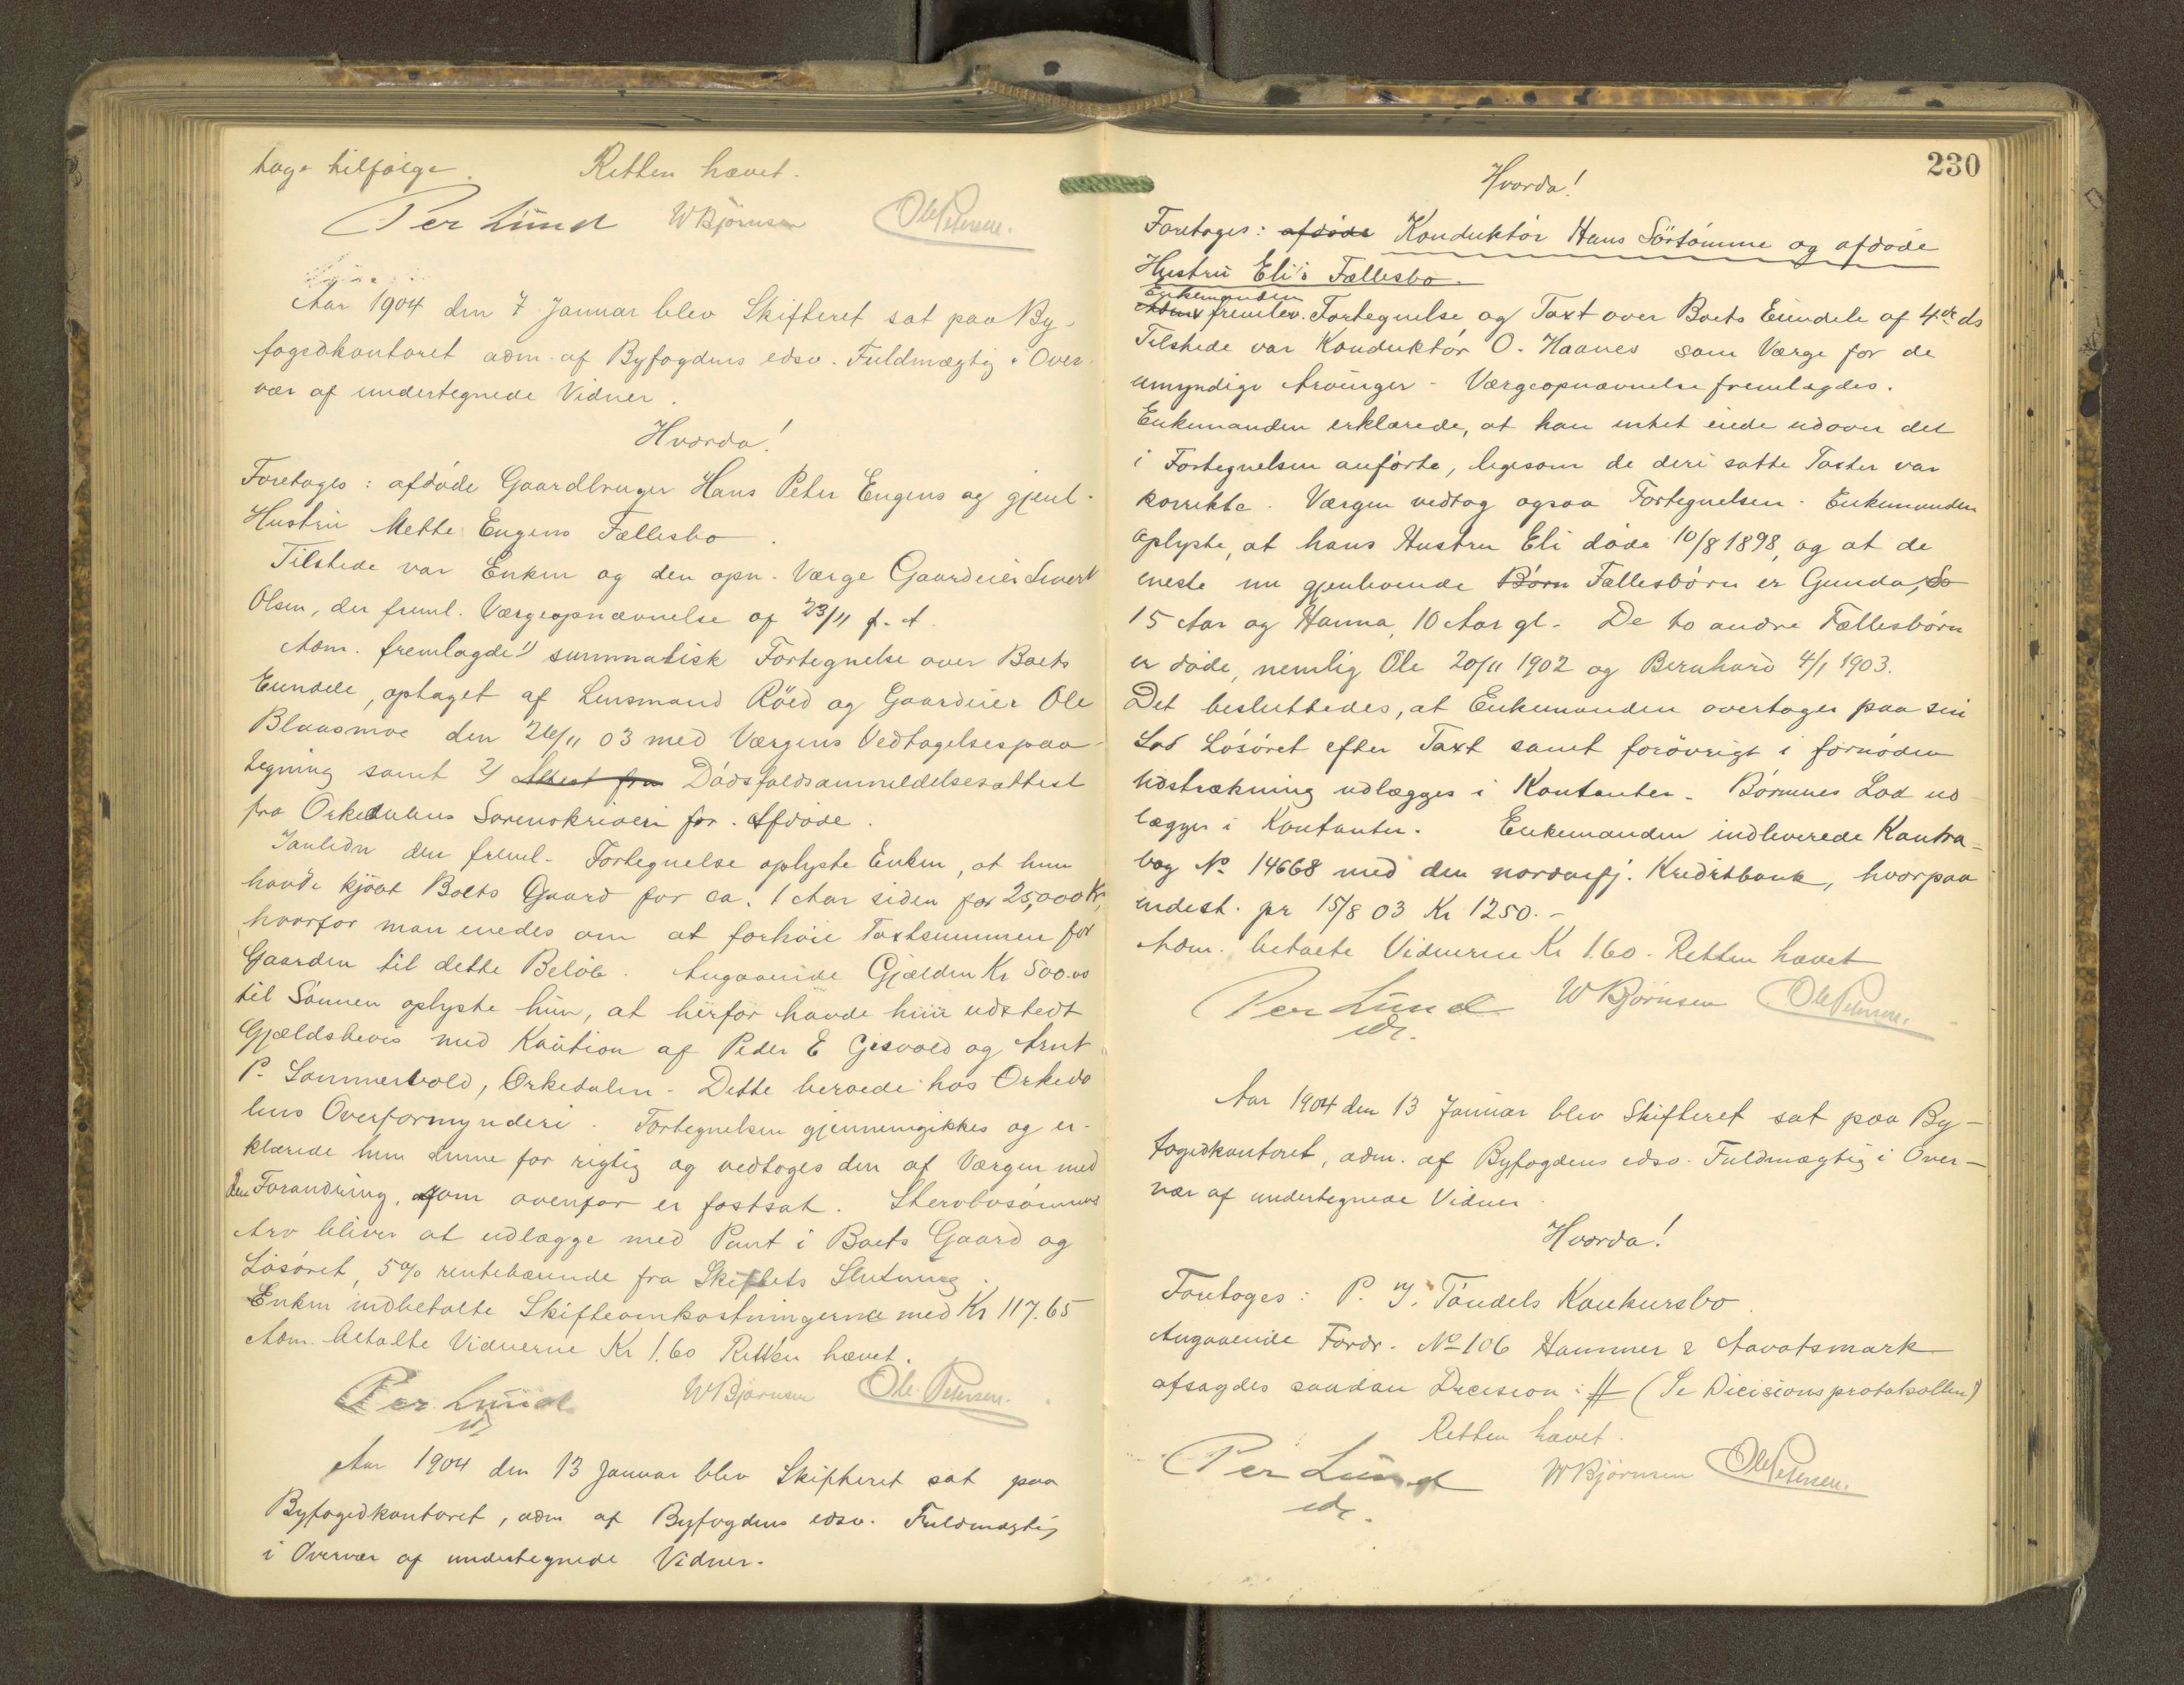 tage tilfølge. Retten hævet.
Per Lund WBjørnsen Ole Petersen.
Aar 1904 den 7 Januar blev Skifteret sat paa By-
fogedkontoret adm. af Byfogdens edsv. Fuldmægtig i Over-
vær af undertegnede Vidner.
Hvorda!
Foretages: afdøde Gaardbruger Hans Peter Engens og gjenl.
Hustru Mette Engens Fællesbo.
Tilstede var Enken og den opn. Værge Gaardeier Sivert
Olsen, der freml. Værgeopnævnelse af 23/11 f. A.
Adm. fremlagde 1) summatisk Fortegnelse over Boets
Eiendele, optaget af Lensmand Röed og Gaardeier Ole
Blaasmoe den 26/11 03 med Værgens Vedtagelsespaa-
tegning samt 2) Attest fra Dødsfaldsanmeldelsesattest
fra Orkedalens Sorenskriveri for Afdøde.
I anledn den freml. Fortegnelse oplyste Enken, at hun
havde kjøbt Boets Gaard for ca. 1 Aar siden for 25,000 Kr,
hvorfor man enedes om at forhøie Taxtsummen for
Gaarden til dette Beløb. Angaaende Gjælden Kr 500.00
til Sønnen oplyste hun, at herfor havde hun udstedt
Gjældsbevis med Kaution af Peder E Gjesvold og Arnt
P. Sommervold, Orkedalen. Dette beroede hos Orkeda
lens Overformynderi. Fortegnelsen gjennemgikkes og er-
klærede hun denne for rigtig og vedtoges den af Værgen med
den Forandring, som ovenfor er fastsat. Stervbosønnens
Arv bliver at udlægge med Pant i Boets Gaard og
Løsøret, 5% rentebærende fra Skiftets Slutning.
Enken indbetalte Skifteomkostningerne med Kr 117.65
Adm. betalte Vidnerne Kr 1.60 Retten hævet.
Per Lund WBjørnsen Ole Petersen.
Aar 1904 den 13 Januar blev Skifteret sat paa
Byfogedkontoret, adm af Byfogdens edsv. Fuldmægtig
i Overvær af undertegnede Vidner.
230
Hvorda!
Foretages: afdøde Konduktør Hans Sörtömme og afdøde
Hustru Eli's Fællesbo.
Enkemanden
Adm fremlev. Fortegnelse og Taxt over Boets Eiendele af 4de ds
Tilstede var Konduktør O. Haanes som Værge for de
umyndige Arvinger - Værgeopnævnelse fremlagdes.
Enkemanden erklærede, at han intet eiede udover det
i Fortegnelsen anførte, ligesom de deri satte Taxter var
korrekte. Værgen vedtog ogsaa Fortegnelsen. Enkemanden
oplyste, at hans Hustru Eli døde 10/8 1898, og at de
eneste nu gjenlevende Børn Fællesbørn er Gunda,
15 Aar og Hanna, 10 Aar gl. De to andre Fællesbørn
er døde, nemlig Ole 20/11 1902 og Bernhard 4/1 1903.
Det besluttedes, at Enkemanden overtager paa sin
Lod Løsøret efter Taxt samt forøvrigt i fornøden
Udstrækning udlægges i Kontanter. Børnenes Lod ud
lægges i Kontanter. Enkemanden indleverede Kontra-
bog No 14668 med den nordenfj. Kreditbank, hvorpaa
indest. pr 15/8 03 Kr 1250.-
Adm. betalte Vidnerne Kr 1.60. Retten hævet
Per Lund WBjørnsen Ole Petersen.
edsv.
Aar 1904 den 13 Januar blev Skifteret sat paa By-
fogedkontoret, adm. af Byfogdens edsv. Fuldmægtig i Over-
vær af undertegnede Vidner.
Hvorda!
Foretages: P. Tøndels Konkursbo.
Angaaende Fordr. No 106 Hammer & Aavatsmark
afsagdes saadan Decision: # (Se Dicisionsprotokollen)
Retten hævet.
Per Lund WBjørnsen Ole Petersen.
edsv.